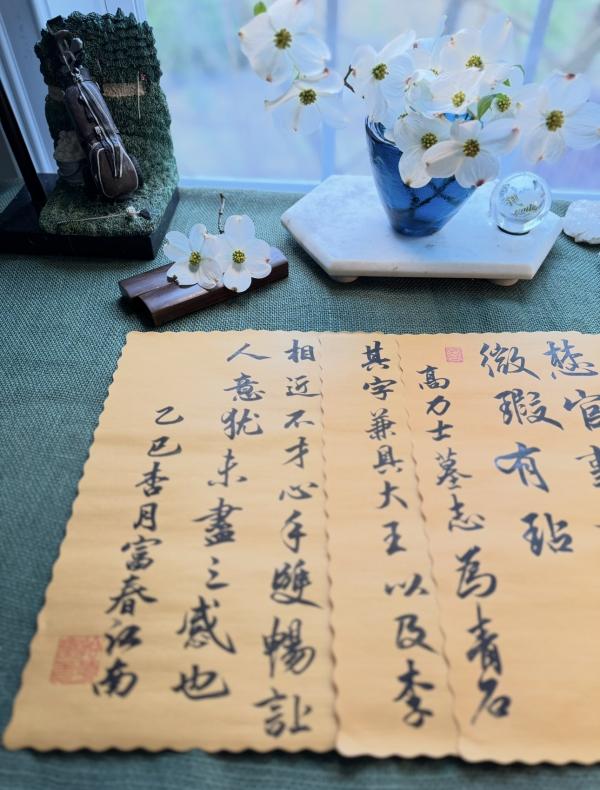 官事
微瑕有玷
高力士墓志為青石
其字兼具大王以及李
相近不才心手雙暢让
人意犹未盡之感也
乙巳杏月富春江南